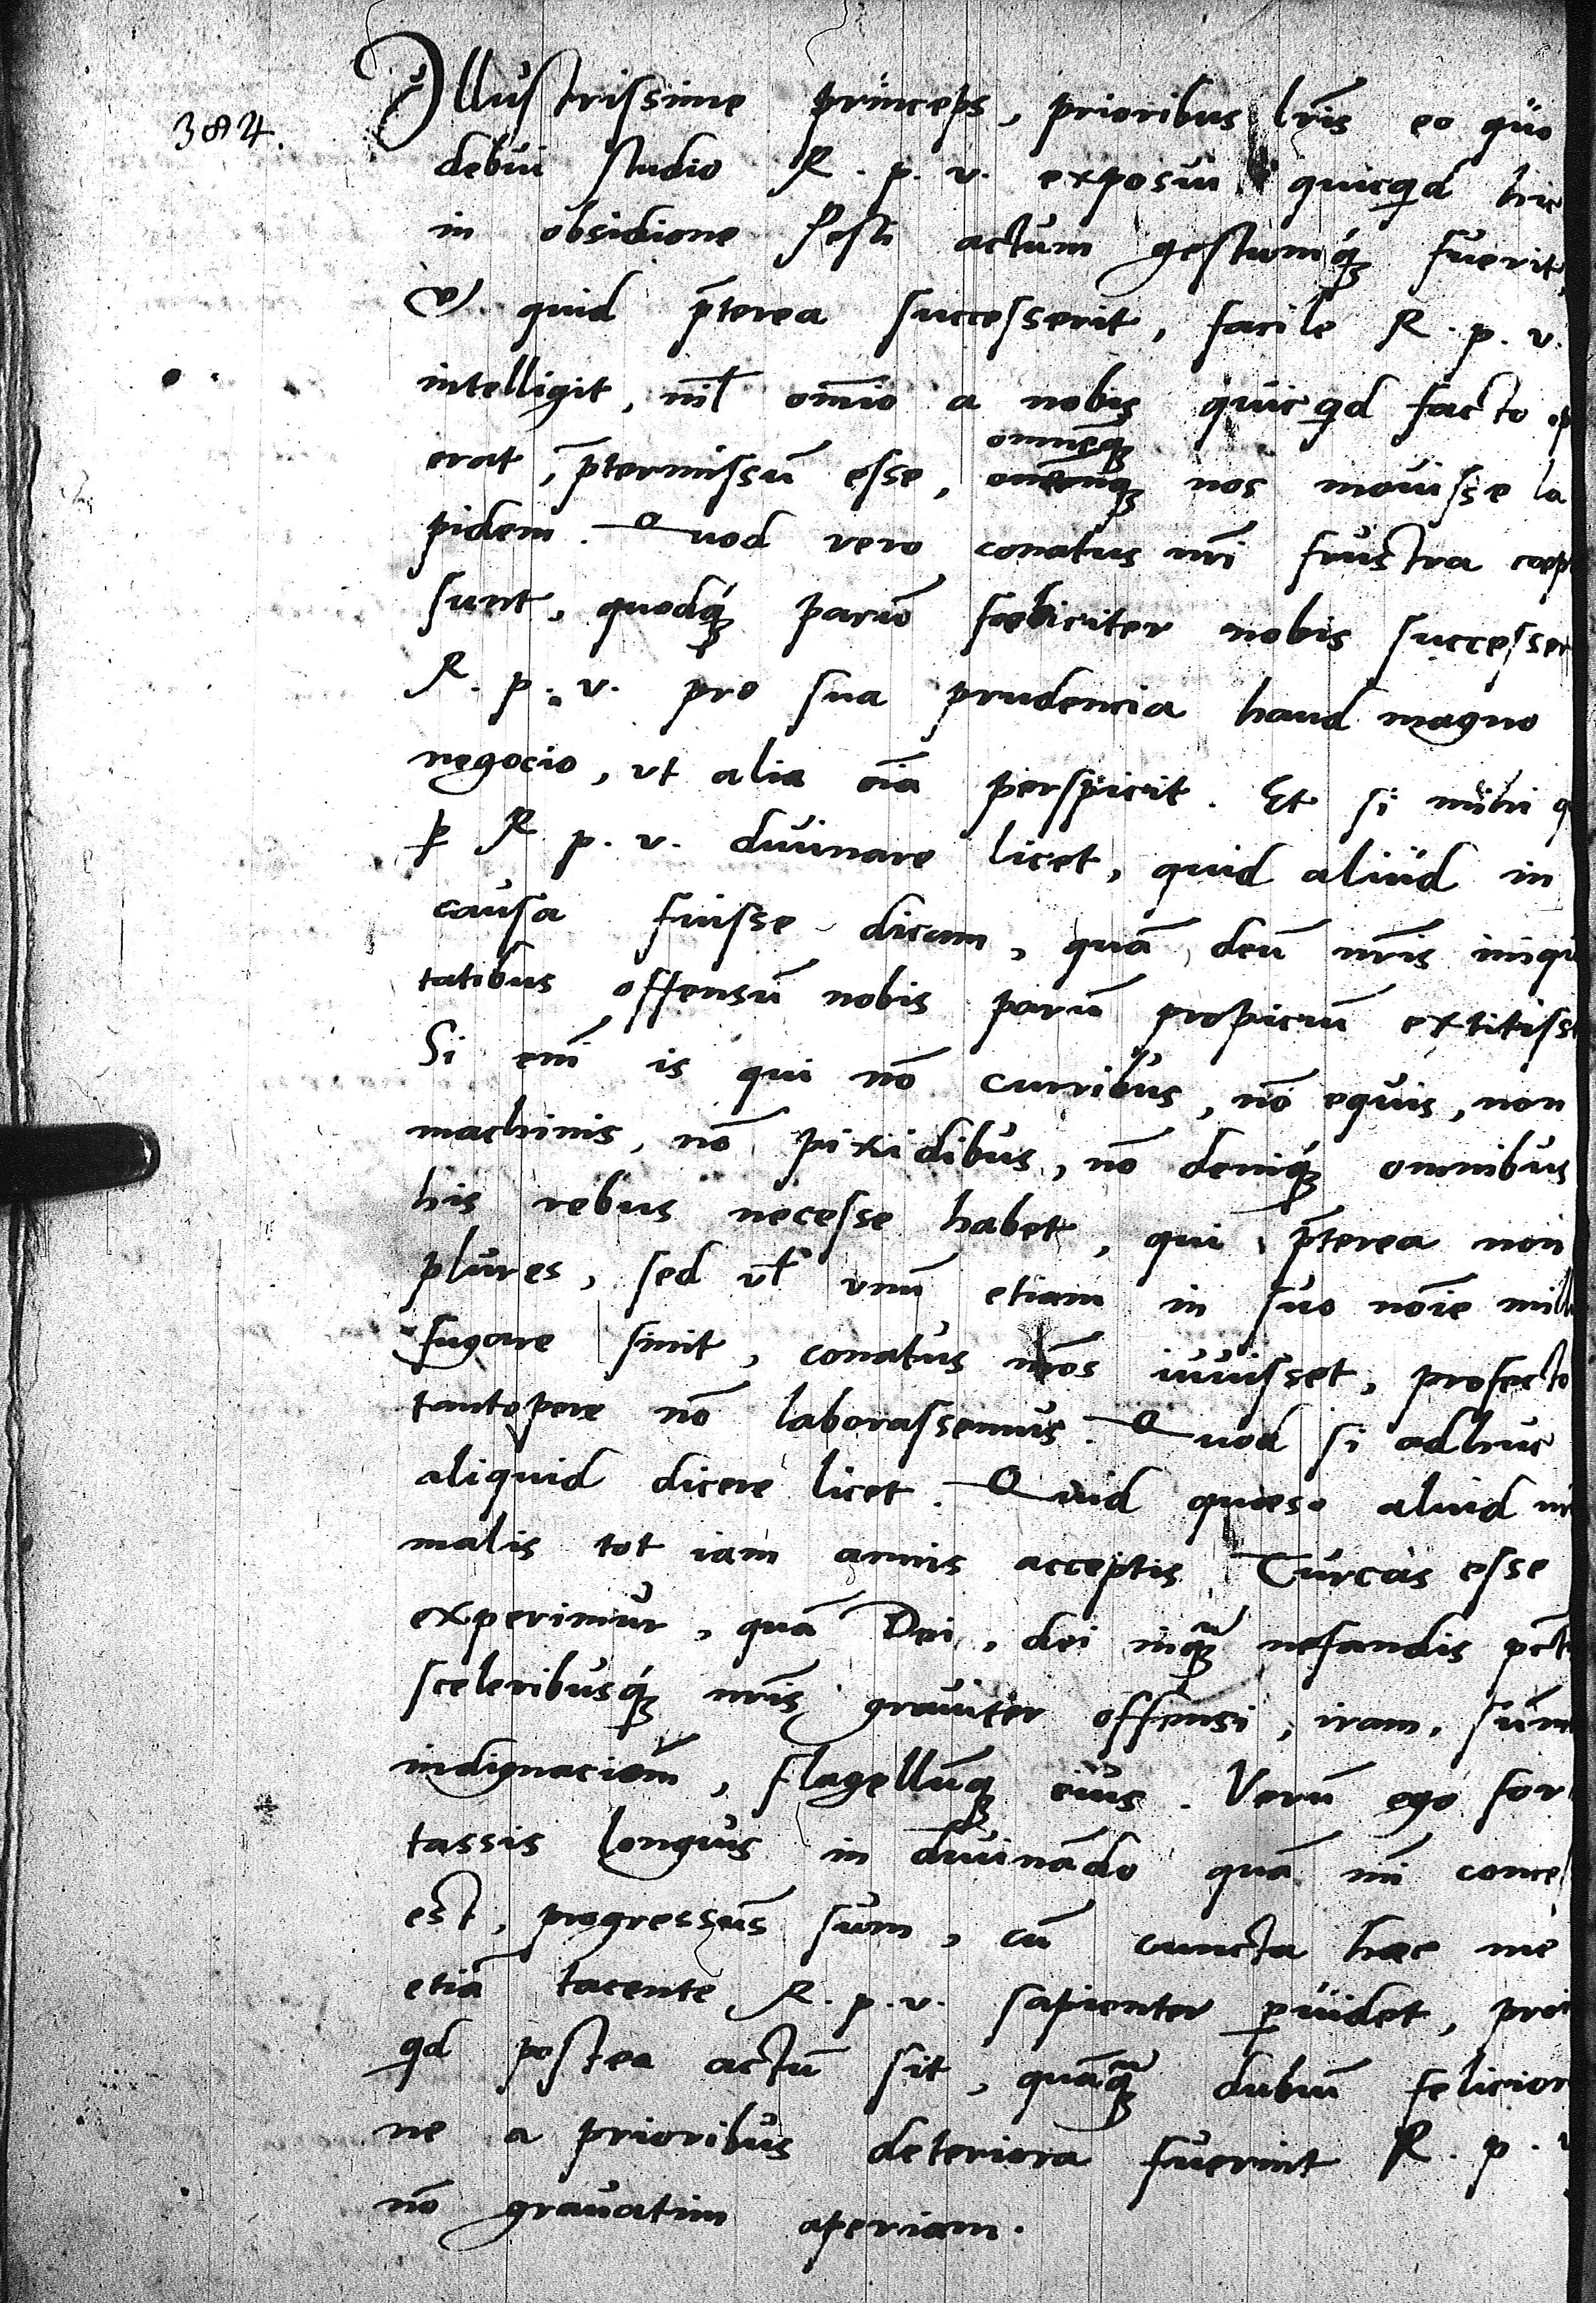 384.
Illustrissime princeps, prioribus lr̄is eo quo
debui studio R. p. v. exposui quicqd hic
in obsidione Pesti actum gestumq́ꝫ fuerit,
& quid p̄terea successerit, facile R. p. v.
intelligit, nil̄ om̄io a nobis quicqd facto op
erat, p̄termissū esse, omnēqꝫ nos mouisse la
pidem. Quod vero conatus nr̄i frustra caept
sunt, quodq́ꝫ parū foeliciter nobis successer
R. p. v. pro sua prudencia haud magno
negocio, vt alia oīa perspicit. Et si mihi q
ꝑ R. p. v. diuinare licet, quid aliud in
causa fuisse dicam, quā deū nr̄is iniqui
tatibus offensū nobis parū propiciū extitisse
Si em̄ is qui nō curribus, nō equis, non
machinis, nō pixidibus, nō deniq́ꝫ omnibus
his rebus necesse habet, qui p̄terea non
plures, sed vl̄ vnū etiam in suo noīe mille
fugare sinit, conatus nr̄os iuuisset, profecto
tantopere nō laborassemus. Quod si adhuc
aliquid dicere licet. Quid quaeso aliud in
malis tot iam annis acceptis Turcas esse
experimur, quā Dei, dei inqꝫ nefandis pct̄
sceleribusq́ꝫ nr̄is grauiter offensi, iram, sum̄
indignacionē, flagellūqꝫ eius. Verū ego for
tassis longius in diuinādo quā mī conces
est, progressus sum, cū cuncta haec me
etiā tacente R. p. v. sapienter ꝑuidet, proi
qd postea actū sit, quāqꝫ dubiū feliciora
ne a prioribus deteriora fuerint R. p. v
nō grauatim aperiam.